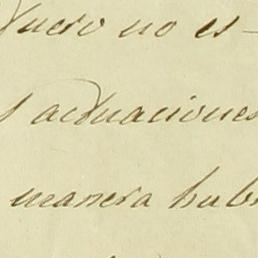 no es-
actuaciones
manera hub